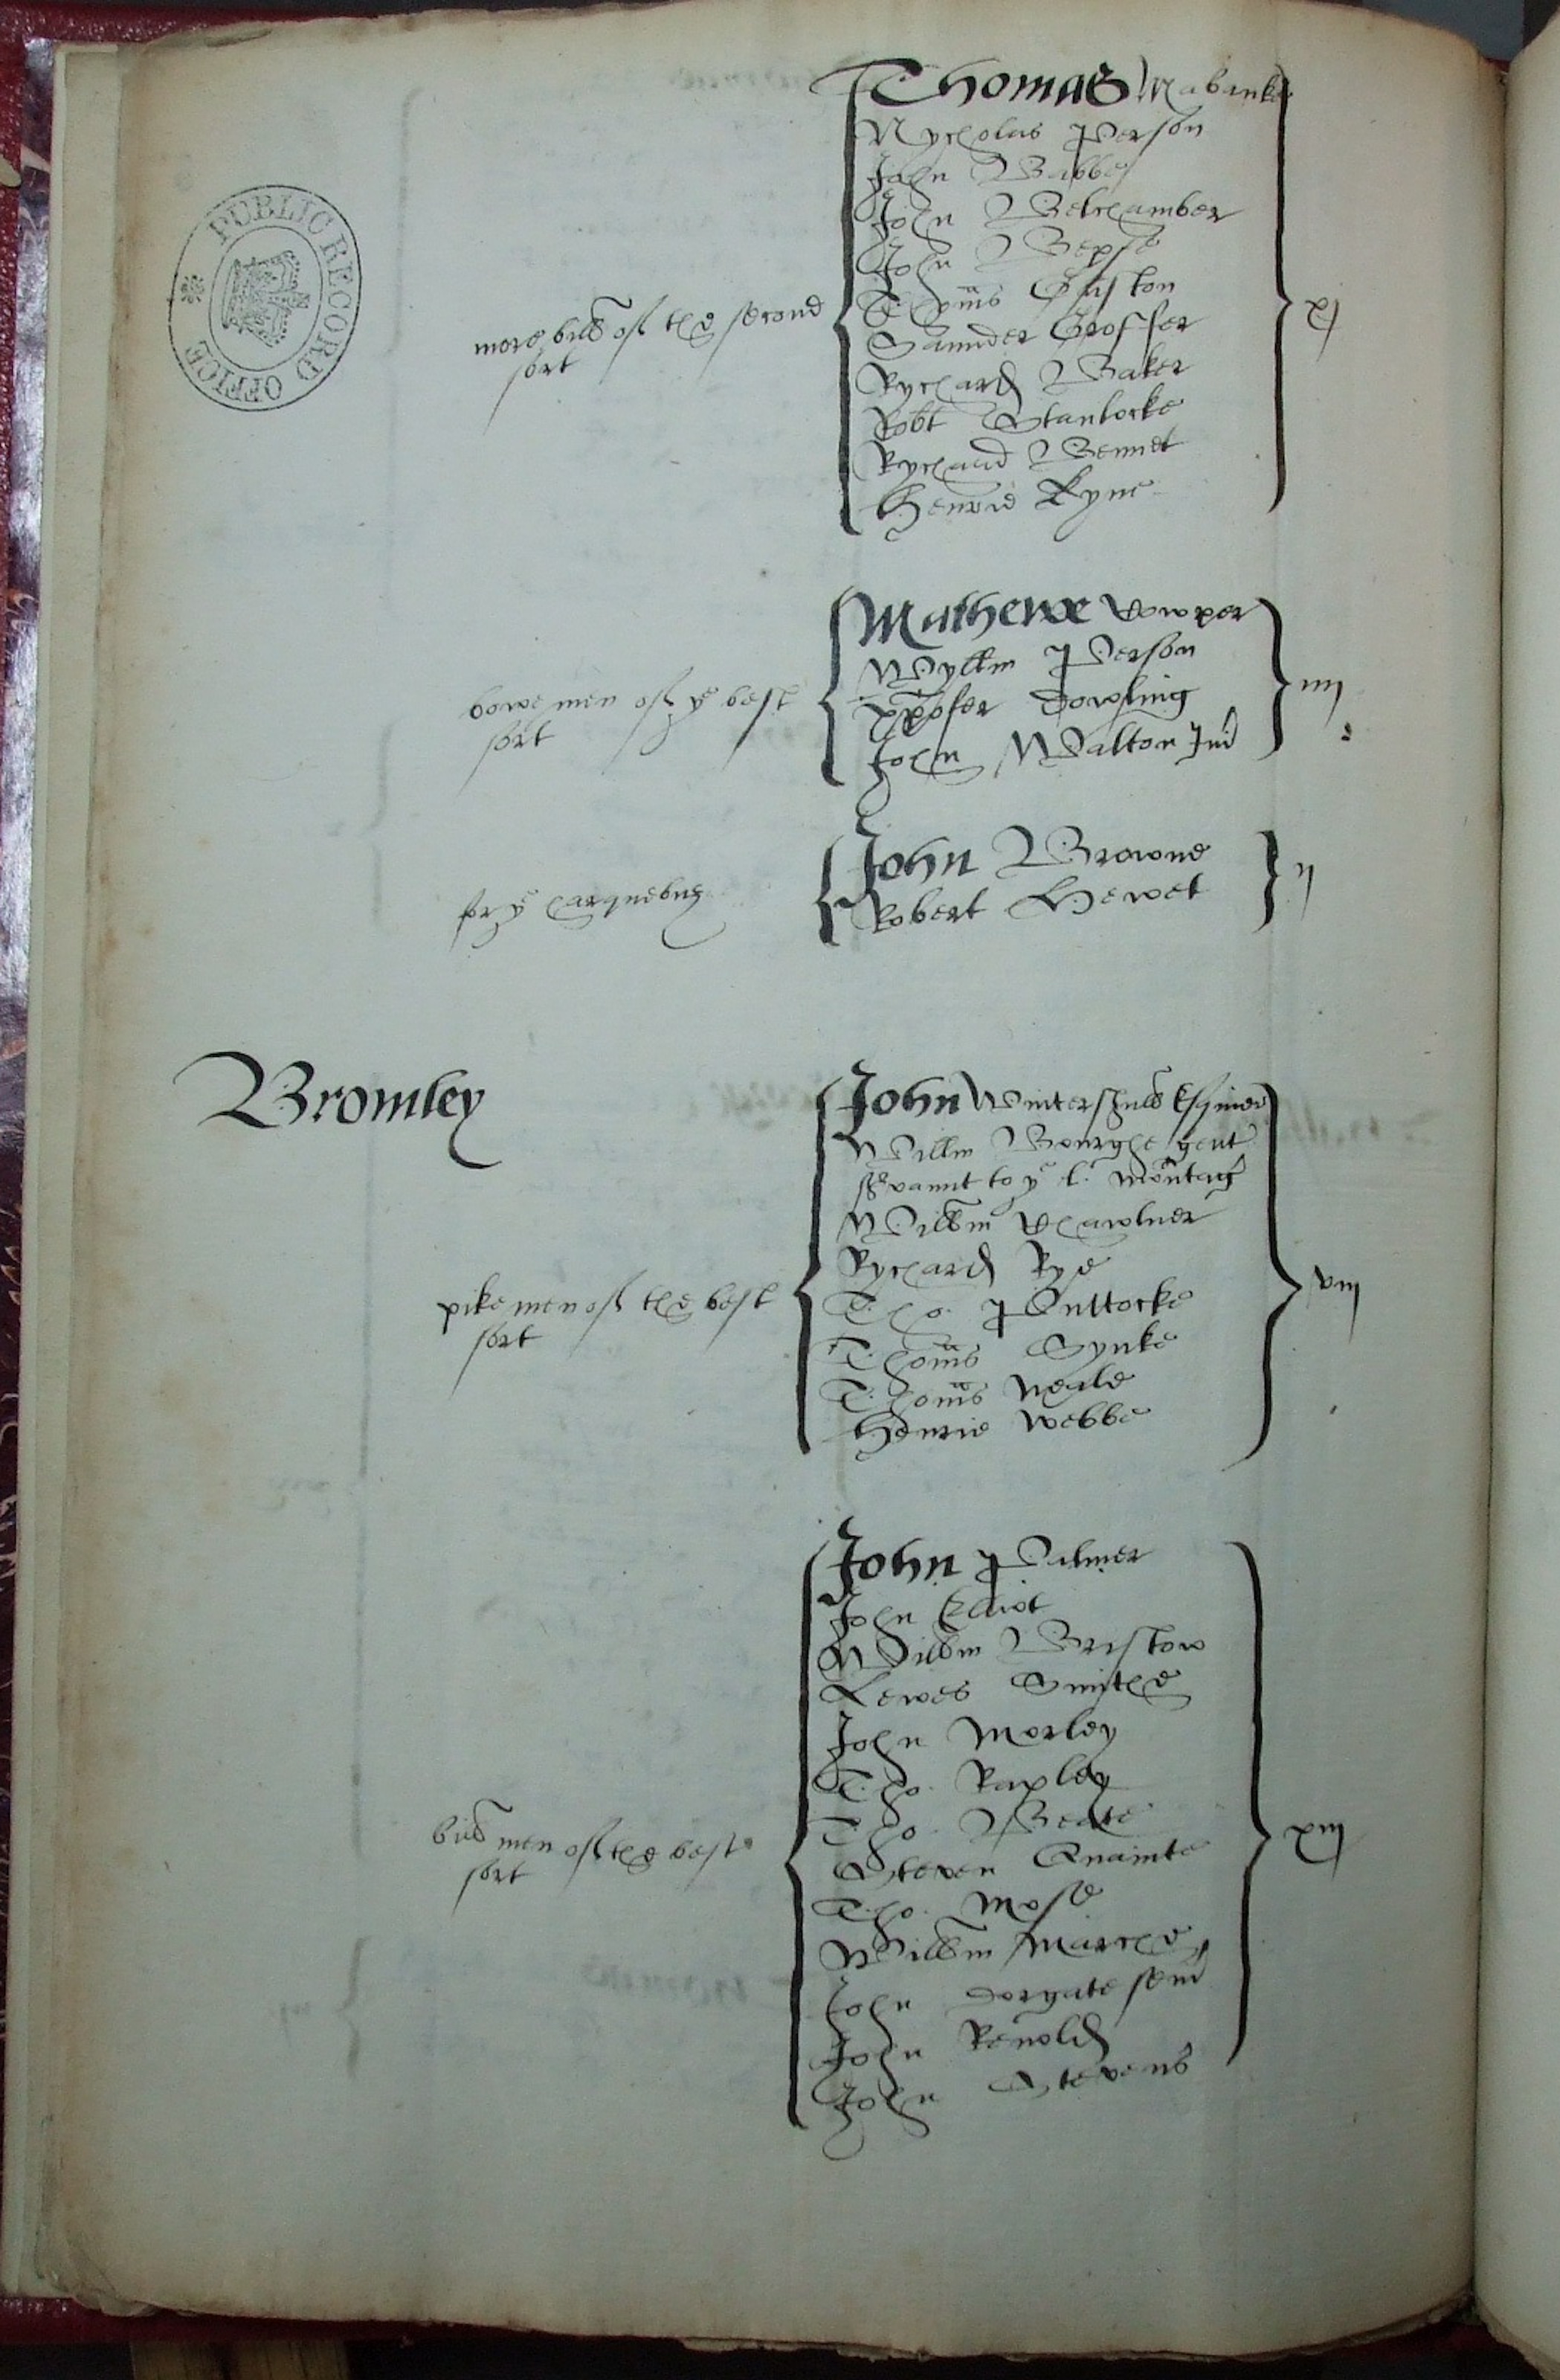 PUBLIC RECORD OFFICE
more billm̃ of the second
sort
Thomas Mabanke
Nycholas Person
John Babbe
John Belchamber
John Bepse
Thom̃s Gaston
Saunder Grosser
Rychard Baker
Robt Stanlocke
Rychard Bennet
Henrie Lyne
xj
bowe men of yͤ best
sort
Mathewe Cowper
Wyllm Person
Xpofer Dowling
John Walton Juñ
iiij
for yͤ harquebuz
John Browne
Robert Hewet
ij
Bromley
pike men of the best
sort
John Wintershull Esquier
Willm Bourghe gent
servaunt to yͤ l. Mountag
Willm Chawlner
Rychard Rye
Tho. Puttocke
Thom̃s Synke
Thom̃s Neale
Henrie Webbe
viij
bill men of the best
sort
John Palmer
John Elliot
Willm Bristow
Lewes Smithe
John Morley
Tho. Rapley
Tho. Beate
Steven Quainte
Tho. Mose
Willm Marche
John Dorgate señ
John Renold
John Stevens
xiij